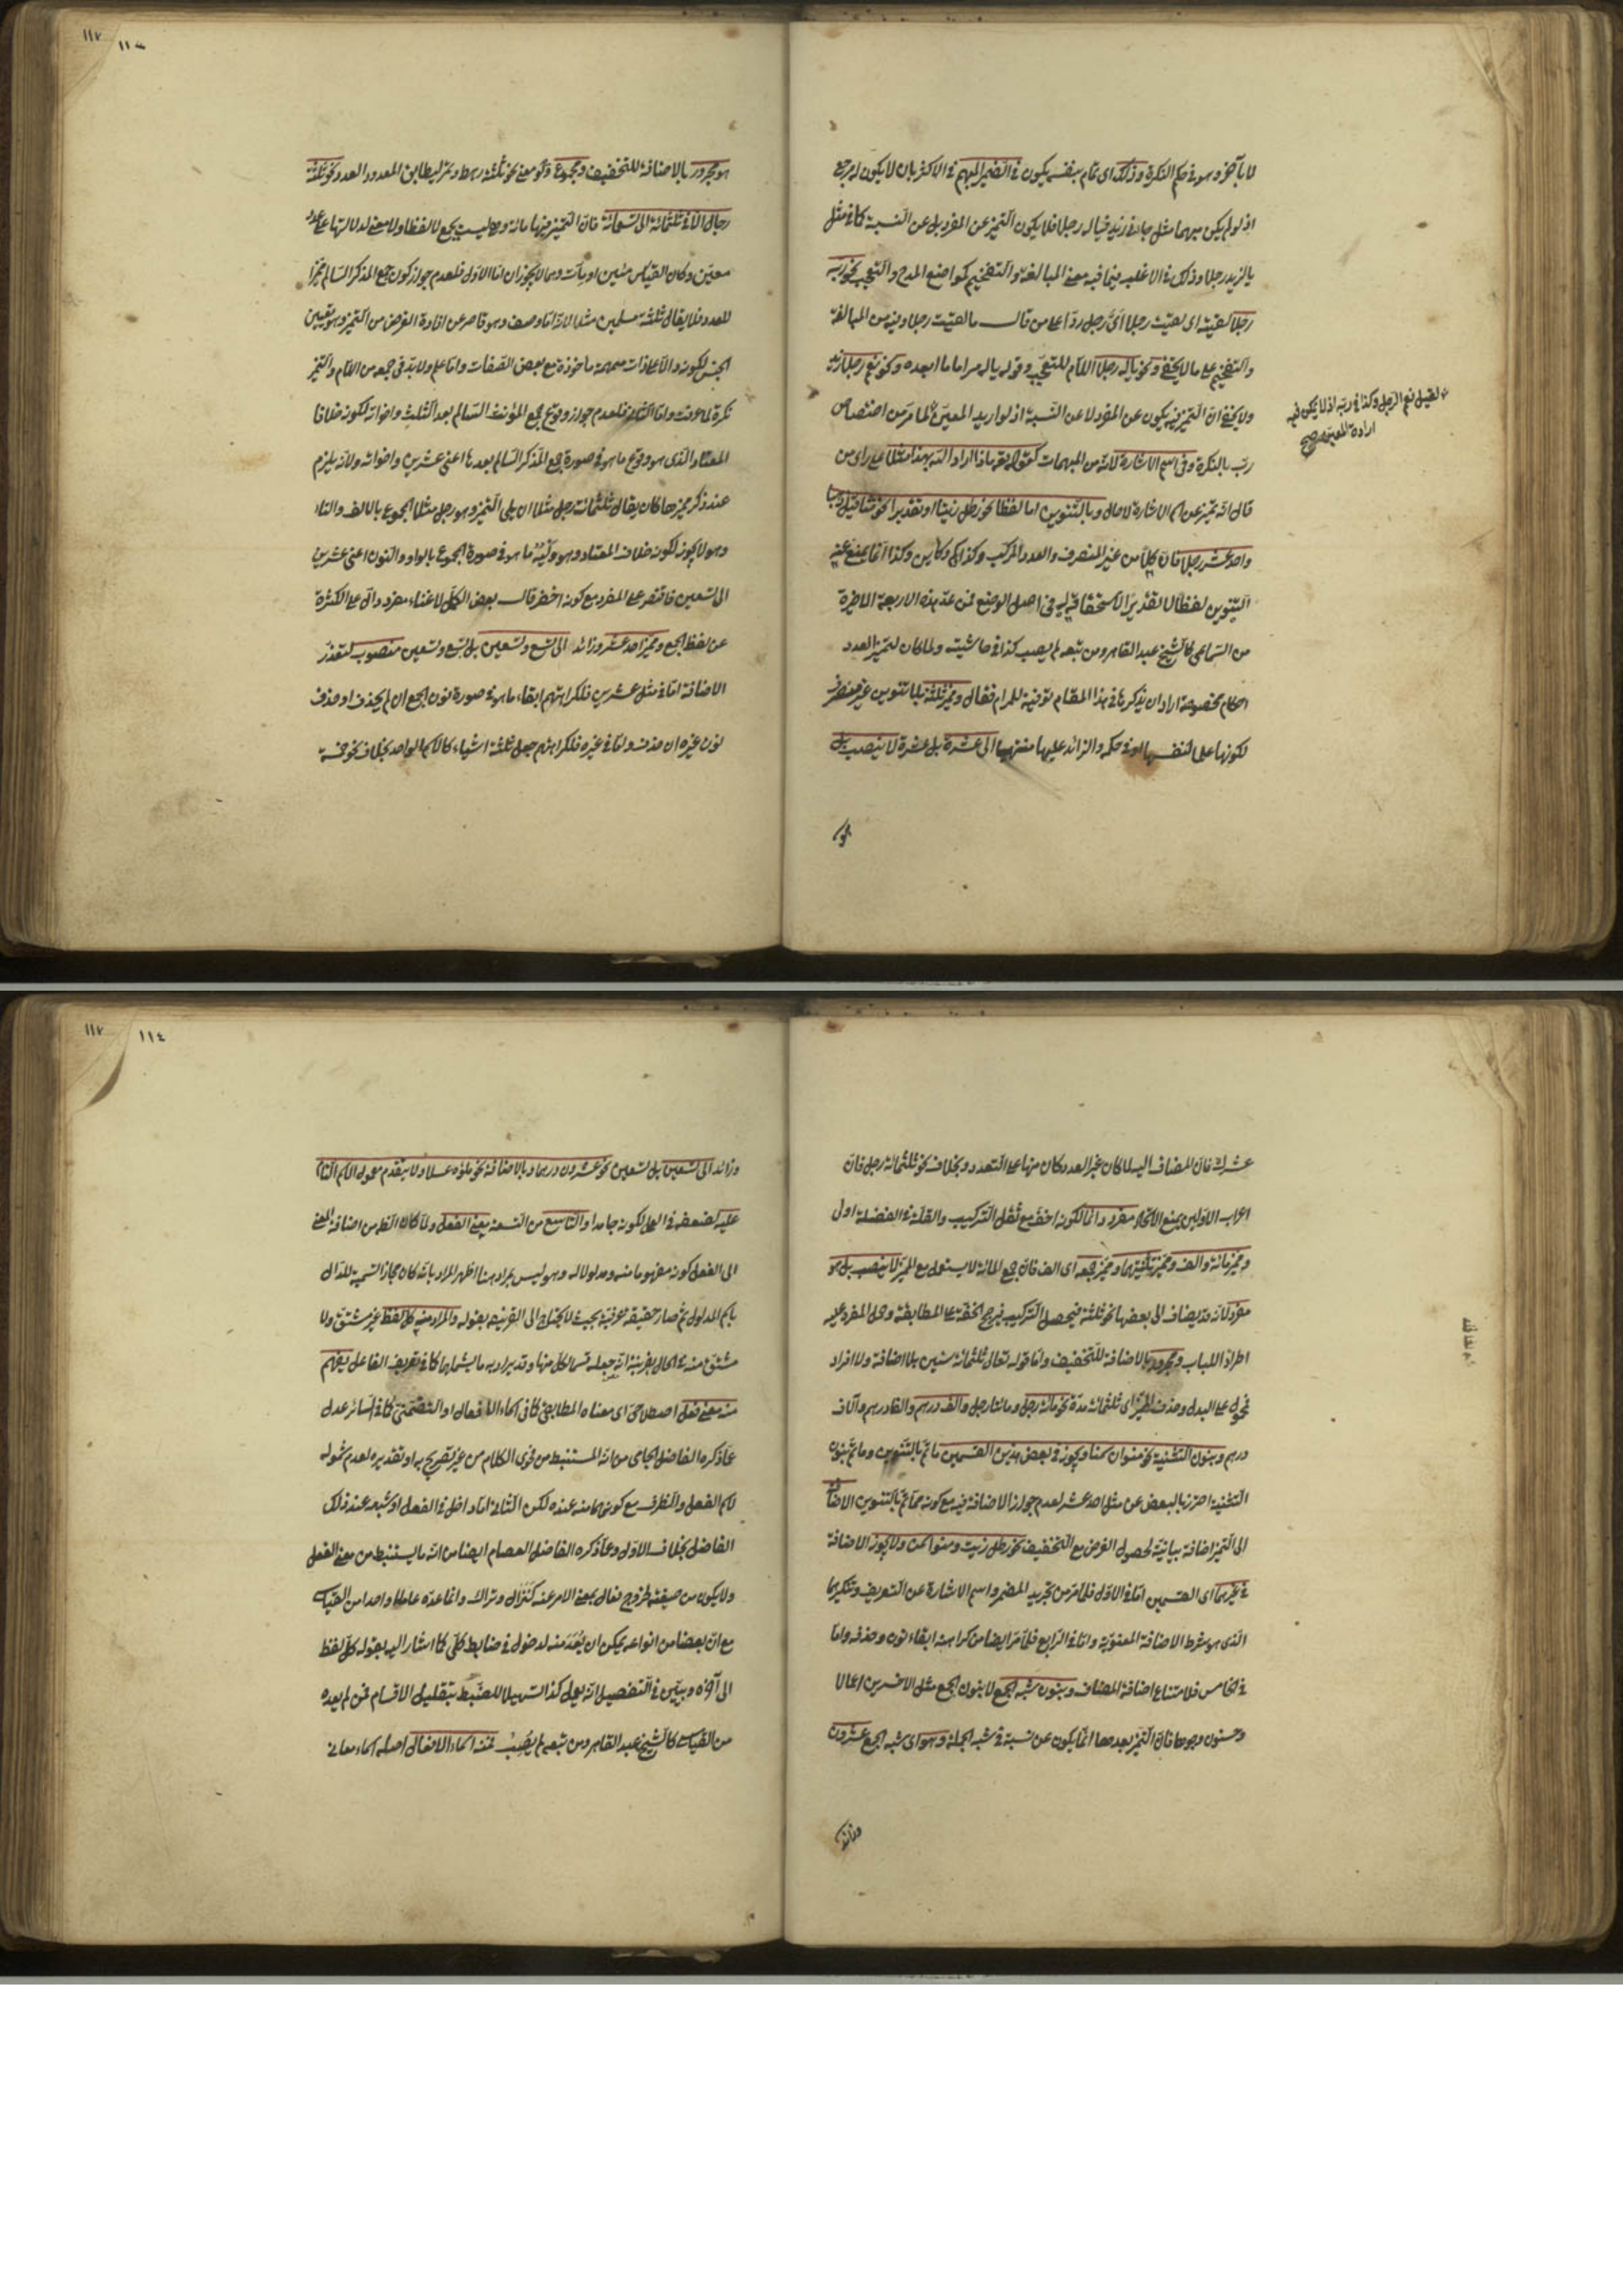 لا بآخر وهو في حكم النكرة وذلك اى تمام بنفسه يكون في الضمير المبهم في الاكثر بان لا يكون له مرجع
اذ لو لم يكن مبهما مثل جاءنى زيد فياله رجلا فلا يكون التميز عن المفرد بل عن النسبة كما في مثل
يا لزيد رجلا وذلك في الاغلب فيما فيه معنى المبالغة والتفخيم كمواضع المدح والتعجب نحو ربه
رجلا لقيته اى لقيت رجلا اىّ رجل ردّا على من قال ما لقيت رجلا وفيه من المبالغة
والتفخيم على ما لا يخفى ونحو ياله رجلا اللام للتعجب وقوله ياله مر اما ما بعده ونحو نعم رجلا زيد
ولا يخفى ان التميز فيه يكون عن المفرد لا عن النسبة اذ لو اريد المعين لما مر من اختصاص
ربّ بالنكرة وفى اسم الاشارة لانه من المبهمات كقوله تع ماذا اراد الله بهذا مثلا على راى من
قال انه تميز عن اسم الاشارة لا حال وبالتنوين اما لفظا نحو رطل زيتا او تقديرا نحو مثاقيل ذهبا
واحد عشر رجلا فان كلا من غير المنصرف والعدد المركب وكذا كم وكاين وكذا انما يمنع عنه
التنوين لفظا لا تقديرا لاستحقاقه له في اصل الوضع فمن عدّ هذه الاربعة الاخيرة
من السماعى كالشيخ عبد القاهر ومن تبعه لم يصب كذا في حاشيته ولما كان لتميز العدد
احكام مخصوصة اراد ان يذكرها في هذا المقام توفية للمرام فقال ومميز ثلثة بلا تنوين غير منصرف
لكونها علما لنفسها او في حكمه والزائد عليها منتهيا الى عشرة بل عشرة لا ينصب بل
هو
لقيل نعم الرجل وكذا في ربه اذ لا يمكن فيه
ارادة المعين صح
١١٧
هو مجرور بالاضافة للتخفيف ومجموع ولو معنى نحو ثلثة رهط وتمر ليطابق المعدود العدد نحو ثلثة
رجال الا في ثلثمائة الى تسعمائة فان التميز فيها مائة وهو ليست بجمع لا لفظا ولا معنى لدلالتها على عدد
معين وكان القياس مئين او مآت وهما لا يجوزان اما الاول فلعدم جواز كون جمع المذكر السالم مميزا
للعدد فلا يقال ثلثة مسلمين مثلا لانه اما وصف وهو قاصر عن افادة الغرض من التميز وهو تعيين
الجنس لكونه دالا على ذات مبهمة ماخوذة مع بعض الصفات واما علم ولا بد في جمعه من اللام والتميز
نكرة لما عرفت واما الثانى فلعدم جواز وقوع جمع المؤنث السالم بعد الثلث واخواته لكونه خلاف
المعتاد الذى هو وقوع ما هو في صورة جمع المذكر السالم بعدها اعنى عشرين واخواته ولانه يلزم
عند ذكر مميزها كان يقال ثلثمائة رجل مثلا ان يلى التميز وهو رجل مثلا المجموع بالالف والتاء
وهو لا يجوز لكونه خلاف المعتاد وهو وليه ما هو في صورة المجموع بالواو والنون اعنى عشرين
الى تسعين فاقتصر على المفرد مع كونه اخصر قال بعض الكمّل لاغناء مفرد دال على الكثرة
عن لفظ الجمع ومميز احد عشر وزائد الى تسع وتسعين بل تسع وتسعين منصوب لتعذر
الاضافة اما في مثل عشرين فلكراهتهم ابقاء ما هو في صورة نون الجمع ان لم يحذف او حذف
نون غيره ان حذف واما في غيره فلكراهتهم جعل ثلثة اشياء كالاسم الواحد بخلاف نحو خمسة
عشرك فان المضاف اليه لما كان غير العدد كان منها على التعدد وبخلاف نحو ثلثمائة رجل فان
اعراب الاولين يمنع الاتحاد مفرد دائما لكونه اخف مع ثقل التركيب والقلة في الفضلة اولى
ومميز مائة والف ومميز تثنيتهما ومميز جمعه اى الف فان جمع المائة لا يستعمل مع المميز لا ينصب بل هو
مفرد لانه قد يضاف الى بعضها نحو ثلثة فيحصل التركيب فيرجح الخفة على المطابقة وحمل المفرد عليه
اطرادا للباب ومجرور بالاضافة للتخفيف واما قوله تعالى ثلثمائة سنين بلا اضافة ولا افراد
فمحمول على البدل وحذف المميز اى ثلثمائة مدة نحو مائة رجل ومائتا رجل والف درهم والفا درهم وآلاف
درهم وبنون التثنية نحو منوان سمنا ويجوز في بعض هذين القسمين ما تم بالتنوين وما تم بنون
التثنية احترز بالبعض عن مثل احد عشر لعدم جواز الاضافة فيه مع كونه مما تم بالتنوين الاضافة
الى التميز اضافة بيانية لحصول الغرض مع التخفيف نحو رطل زيت ومنوا سمن ولا يجوز الاضافة
في غيرهما اى القسمين اما في الاول فلما مر من تجريد المضمر واسم الاشارة عن التعريف وتنكيرهما
الذى هو شرط الاضافة المعنوية واما في الرابع فلما مر ايضا من كراهة ابقاء نون وحذفه واما
في الخامس فلامتناع اضافة المضاف وبنون شبه الجمع لا بنون الجمع مثل الاخسرين اعمالا
وحسنون وجوها فان التميز بعدهما انما يكون عن نسبة في شبه الجملة وهو اى شبه الجمع عشرون
وزائد
١١٧
١١٤
وزائد الى تسعين بل تسعين نحو عشرون درهما وبالاضافة نحو ملؤه عسلا ولا يتقدم معمول الاسم التام
عليه لضعفه في العمل لكونه جامدا والتاسع من التسعة معنى الفعل ولما كان الظ من اضافة المعنى
الى الفعل كونه مفهوما منه ومدلولا له وهو ليس بمراد هنا اظهر المراد بانه كان مجازا لتسمية للدال
باسم المدلول ثم صار حقيقة عرفية بحيث لا يحتاج الى القرينة بقوله والمراد منه كل لفظ غير مشتق ولا
مشتق منه في الحال بقرينة انه جعله قسما لكل منها وقد يراد به ما يشملها كما في تعريف الفاعل يفهم
منه معنى فعل اصطلاحى اى معناه المطابقى كما في اسماء الافعال او التضمنى كما في السائر عدل
عما ذكره الفاضل الجامى من انه المستنبط من فحوى الكلام من غير تصريح به او تقديره لعدم شموله
لاسم الفعل والظرف مع كونهما منه عنده لكن الثانى اما داخل في الفعل او شبهه عند ذلك
الفاضل بخلاف الاول وعما ذكره الفاضل العصام ايضا من انه ما يستنبط من معنى الفعل
ولا يكون من صيغته لخروج فعال بمعنى الامر عنه كنزال وتراك وانما عدّه عاملا واحدا من القياسى
مع ان بعضا من انواعه يمكن ان يعدّ منه لدخوله في ضابط كلى كما اشار اليه بقوله كل لفظ
الى آخره وبيّن في التفصيل انه يعمل كذا تسهيلا للضبط بتقليل الاقسام فمن لم يعده
من القياسى كالشيخ عبد القاهر ومن تبعه لم يُصِبْ فمنه اسماء الافعال اصله اسماء معانى